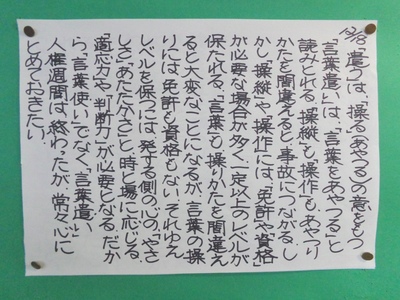 12/13「遣う」は、「操る(あやつる)」の意をもつ
「言葉遣い」は、「言葉をあやつる」と
読みとれる。「操縦」も「操作」も、あやつり
かたを間違えると、事故につながる。し
かし、「操縦」や「操作」には、「免許や資格」
が必要な場合が多く、一定以上のレベルが
保たれる。「言葉」も操りかたを間違え
ると大変なことになるが、言葉の操
りには、免許も資格もない。それゆえ
レベルを保つには、発する側の心の、「やさ
しさ」「あたたかさ」と、時と場に応じる
「適応力」や「判断力」が必要となる。だか
ら、「言葉使い」でなく、「言葉遣い」
人権週間は、終わったが、常々心に
とめておきたい。